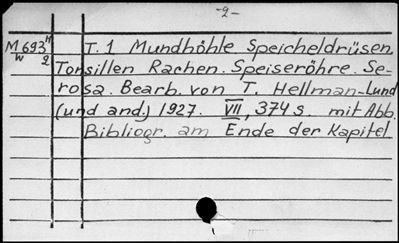 -2-
M693 H T. 1 Mundhöhle Speicheldrüsen.
w 2 Tonsillen Rachen. Speiseröhre. Se-
rosa. Bearb. von T. Hellman-Lund
(und and.) 1927. VII, 374 s. mit Abb.
Bibliogr. am Ende der Kapitel